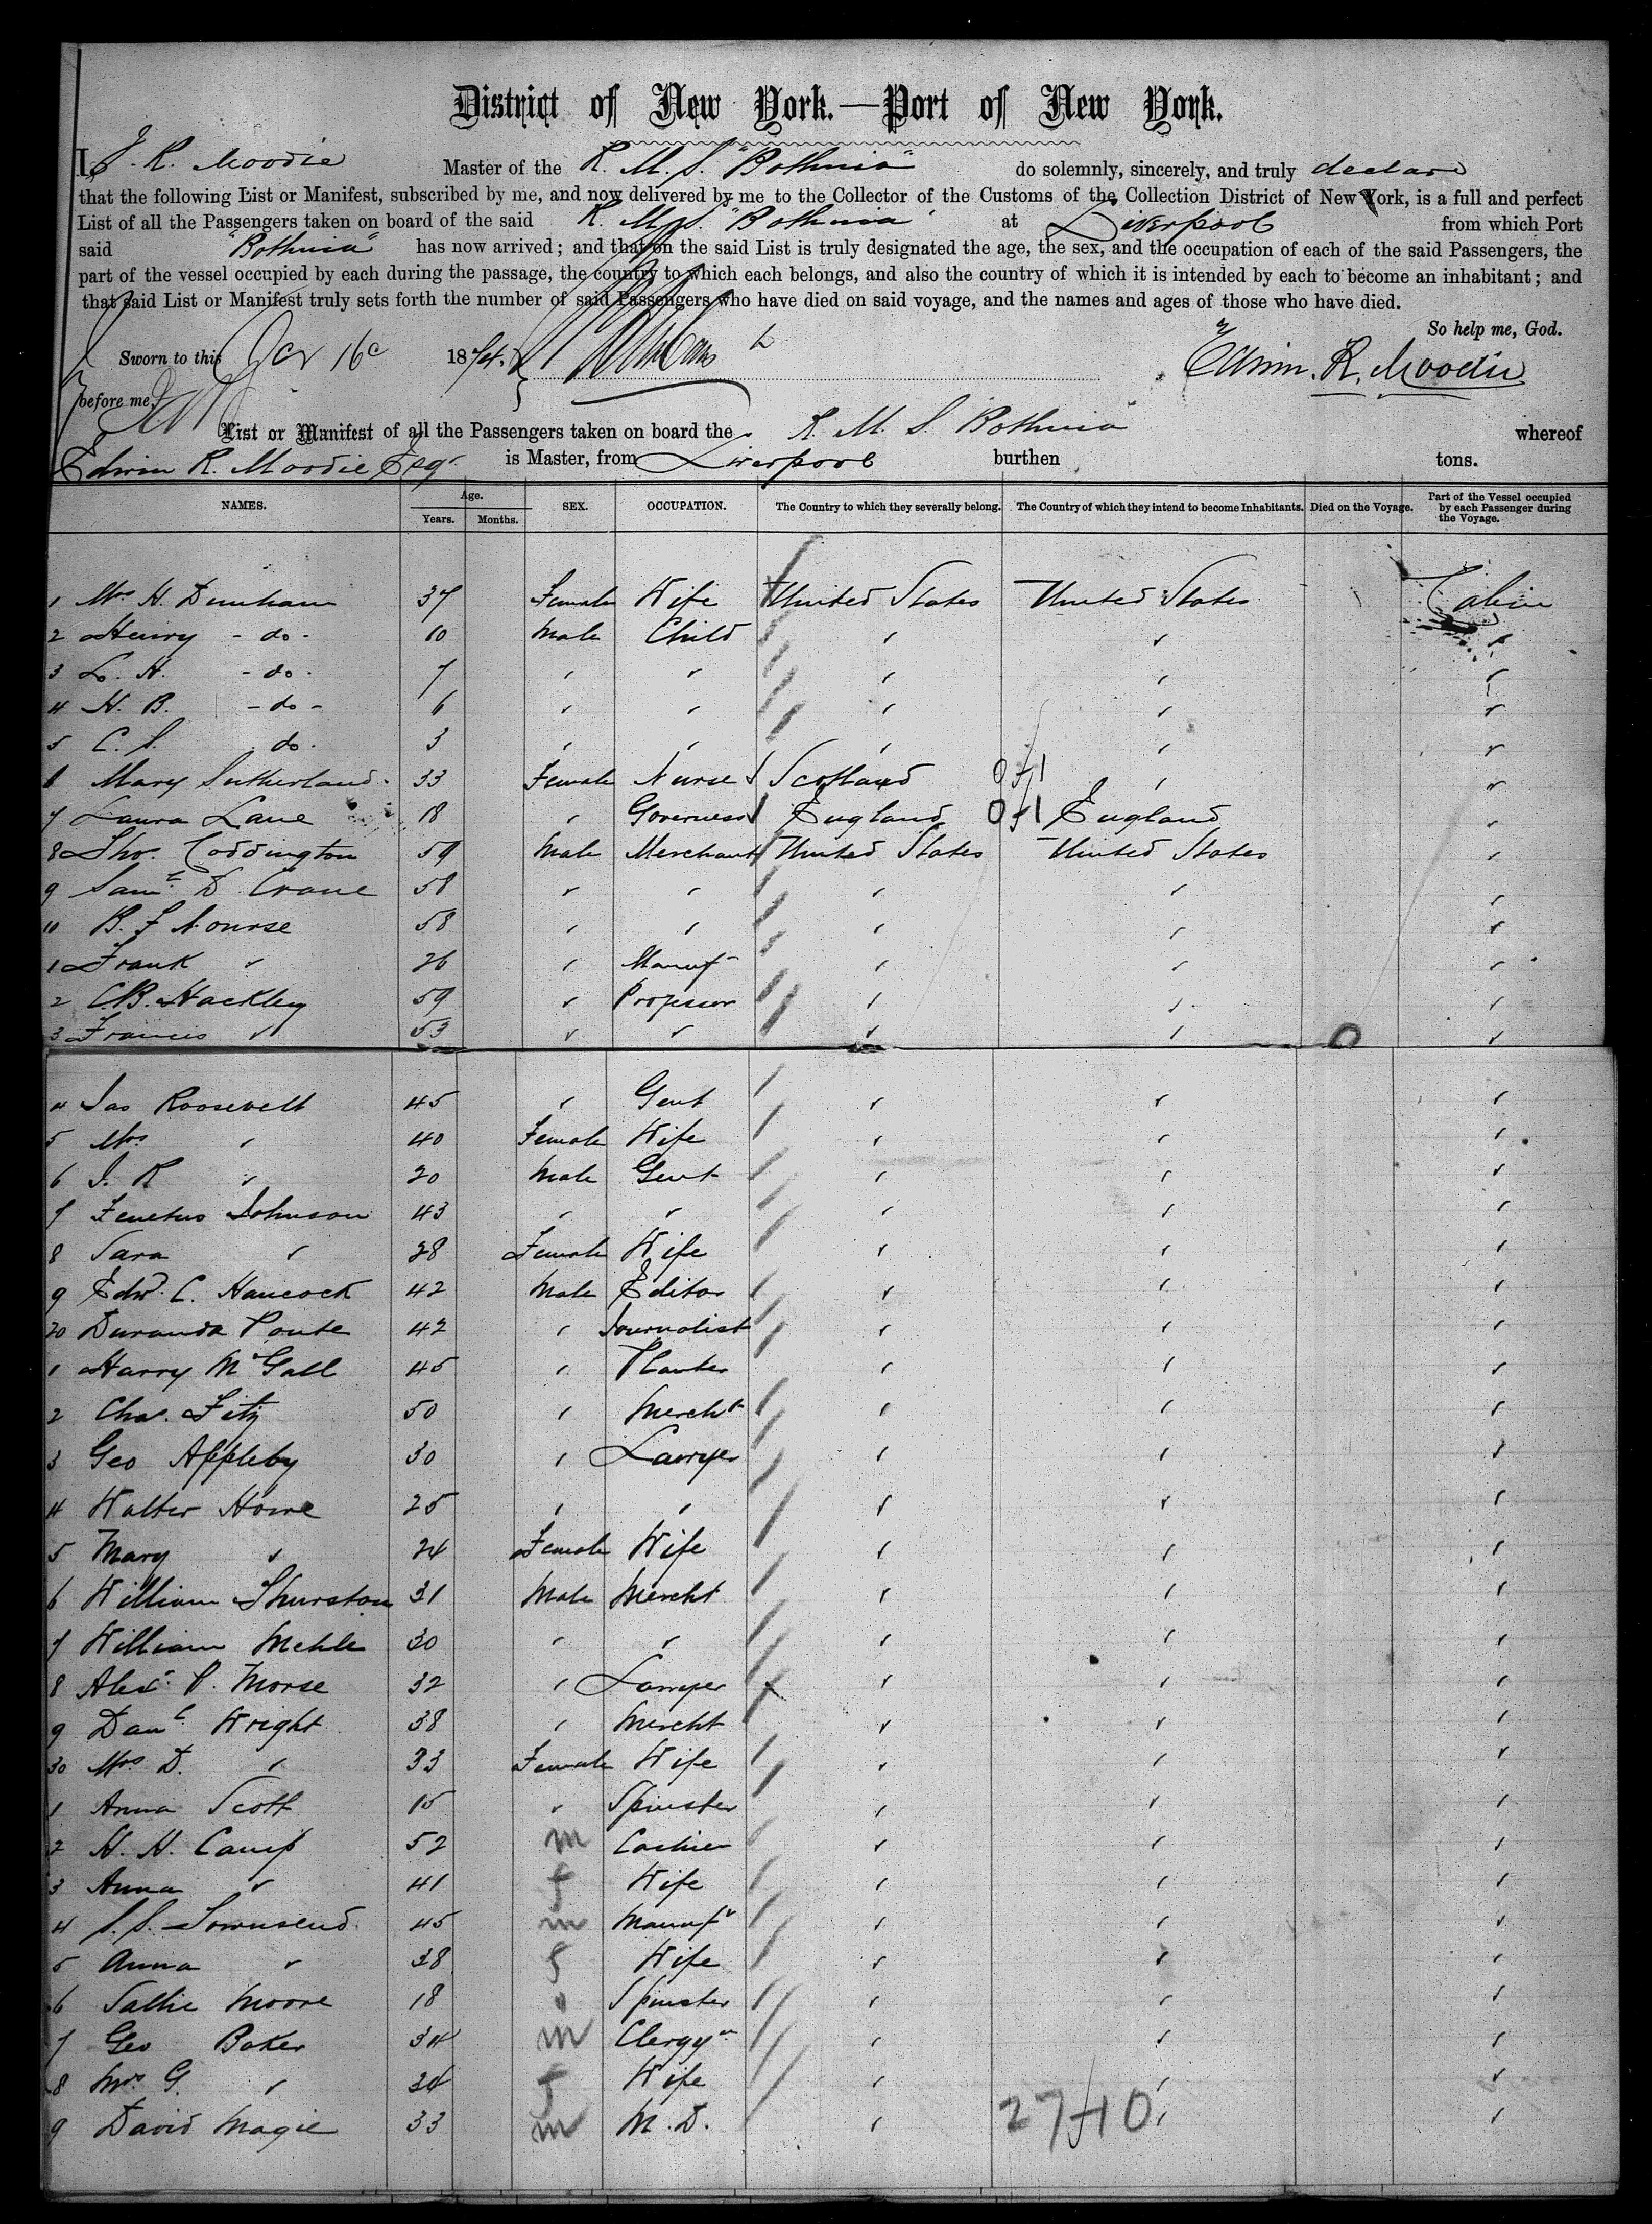 District of New York.—Port of New York.
I E. R. Moodie Master of the R. M. S. "Bothnia" do solemnly, sincerely, and truly declare
that the following List or Manifest, subscribed by me, and now delivered by me to the Collector of the Customs of the Collection District of New York, is a full and perfect
List of all the Passengers taken on board of the said R. M. S. "Bothnia" at Liverpool from which Port
said "Bothnia" has now arrived; and that on the said List is truly designated the age, the sex, and the occupation of each of the said Passengers, the
part of the vessel occupied by each during the passage, the country to which each belongs, and also the country of which it is intended by each to become an inhabitant; and
that said List or Manifest truly sets forth the number of said Passengers who have died on said voyage, and the names and ages of those who have died.
So help me, God.
Sworn to this 16 1874. Edwin. R. Moodie
before me,
List or Manifest of all the Passengers taken on board the R. M. S. Bothnia whereof
Edwin R. Moodie Esqr. is Master, from Liverpool burthen tons.
NAMES. Age. Years. Months. SEX. OCCUPATION. The Country to which they severally belong. The Country of which they intend to become Inhabitants. Died on the Voyage. Part of the Vessel occupied by each Passenger during the Voyage.
1 Mrs H. Dunham 37 Female Wife United States United States Cabin
2 Henry - do - 10 Male Child " " "
3 L. H. - do - 7 " " " " "
4 H. B. - do - 6 " " " " "
5 C. S. do. 3 " " " " "
6 Mary Sutherland 33 Female Nurse Scotland " "
7 Laura Lane 18 " Governess England England "
8 Tho. Coddington 59 Male Merchant United States United States "
9 Saml. D. Crane 58 " " " " "
10 B. F. Nourse 58 " " " " "
1 Frank " 26 " Manuf " " "
2 C. B. Hackley 59 " Professor " " "
3 Francis " 53 " " " " "
4 Jas Roosevelt 45 " Gent " " "
5 Mrs " 40 Female Wife " " "
6 J. R " 20 Male Gent " " "
7 Johnson 43 " " " " "
8 Sara " 28 Female Wife " " "
9 Edwd. C. Hancock 42 Male Editor " " "
20 Duranda Ponte 42 " Journalist " " "
1 Harry McGall 45 " Planter " " "
2 Chas. Fitz 50 " Mercht " " "
3 Geo Appleby 30 " Lawyer " " "
4 Walter Howe 25 " " " " "
5 Mary " 24 Female Wife " " "
6 William Thurston 31 Male Mercht " " "
7 William Mehle 30 " " " " "
8 Alexr. P. Morse 32 " Lawyer " " "
9 Danl. Wright 38 " Mercht " " "
30 Mrs D. " 33 Female Wife " " "
1 Anna Scott 15 " Spinster " " "
2 H. H. Camp 52 m Cashier " " "
3 Anna " 41 f Wife " " "
4 S. S. Townsend 45 m Manufr " " "
5 Anna " 38 f Wife " " "
6 Sallie Moore 18 " Spinster " " "
7 Geo Baker 34 m Clergyn " " "
8 Mrs G. " 34 f Wife " " "
9 David Magie 33 m M. D. " " "